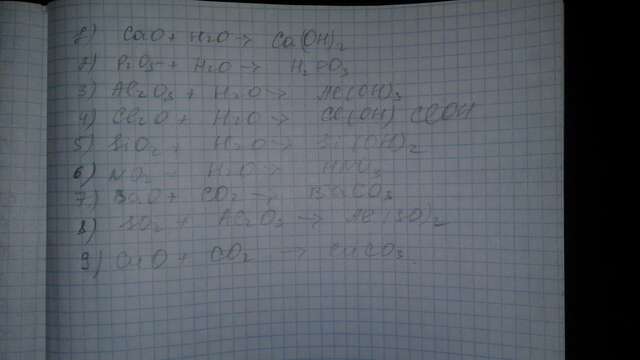 1) CaO + H2O → Ca(OH)2
2) P2O3 + H2O → H3PO3
3) Al2O3 + H2O → Al(OH)3
4) Cl2O + H2O → Cl(OH) ClOH
5) SiO2 + H2O → Si(OH)2
6) NO2 H2O → HNO3
7) BaO + CO2 → BaCO3
8) SO2 + Al2O3 → Al(SO)2
9) CaO + CO2 → CaCO3